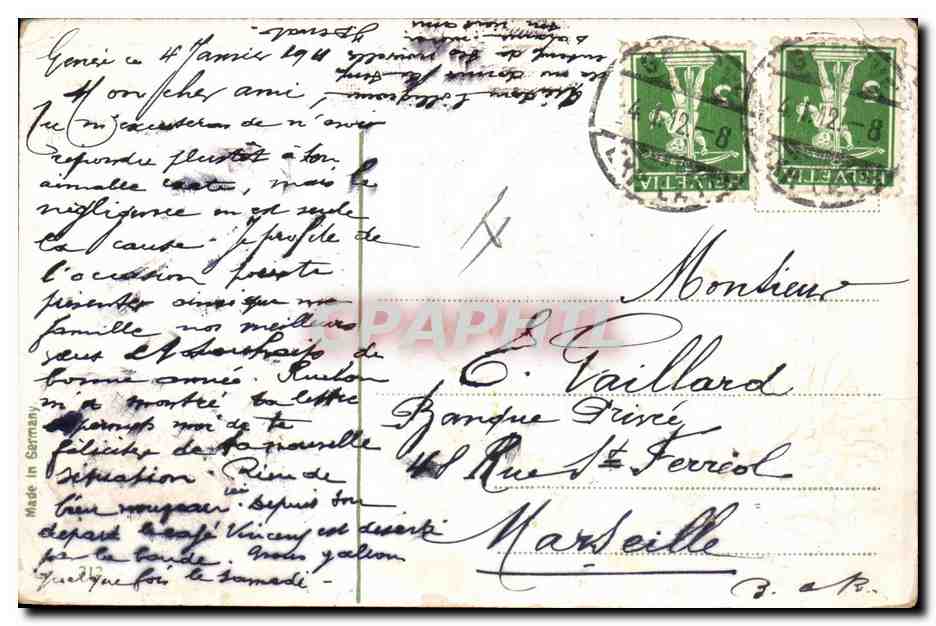 Genève ce 4 Janvier 191
Mon cher ami,
Tu m'excuseras de n'avoir
repondu plustôt à ton
aimable carte, mais la
négligence en est seule
la cause. Je profite de
l'occasion pour te
présenter ainsi que ma
famille nos meilleurs
vœux et souhaits de
bonne année. Ruchon
m'a montré ta lettre
permets moi de te
féliciter de ta nouvelle
situation. Rien de
bien nouveau ici. Depuis ton
départ le café Vincent est déserté
par la bande. Nous y allons
quelque fois le samedi -
Made in Germany
HELVETIA
5
4.I.12.-8
HELVETIA
5
4.I.12.-8
Monsieur
E. Vaillard
Banque Privée
48 Rue St Ferréol
Marseille
B. à R.
CPAPHIL